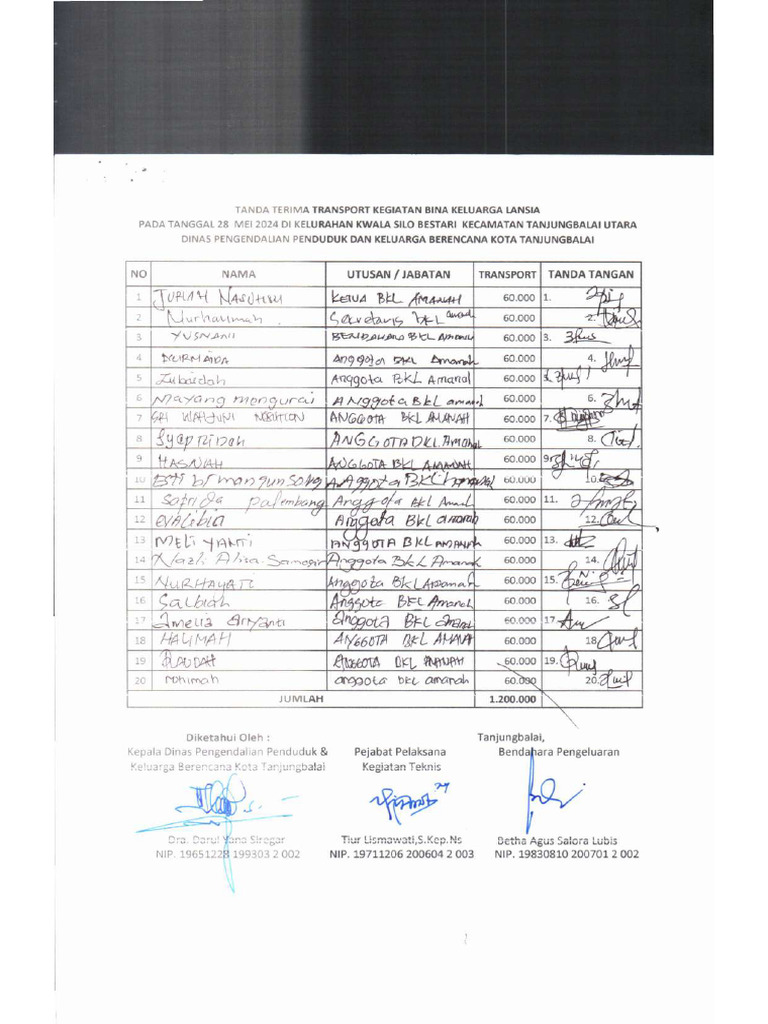 TANDA TERIMA TRANSPORT KEGIATAN BINA KELUARGA LANSIA
PADA TANGGAL 28 MEI 2024 DI KELURAHAN KWALA SILO BESTARI KECAMATAN TANJUNGBALAI UTARA
DINAS PENGENDALIAN PENDUDUK DAN KELUARGA BERENCANA KOTA TANJUNGBALAI
NO NAMA UTUSAN / JABATAN TRANSPORT TANDA TANGAN
1 Ketua BKL AMANAH 60.000 1.
2 Nurhalimah Secretaris BKL 60.000 2.
3 YUSNANI BKL 60.000 3.
4 NURMAIDA Anggota BKL Amanah 60.000 4.
5 Zubaidah Anggota BKL Amanah 60.000
6 Mayang mengurai ANggota BKL amanah 60.000 6.
7 SRI ANGGOTA BKL AMANAH 60.000 7.
8 ANGGOTA BKL Amanah 60.000 8.
9 HASNIAH ANGGOTA BKL AMANAH 60.000 9.
10 Anggota BKL 60.000 10.
11 palembang Anggota BKL Amanah 60.000 11.
12 Anggota BKL amanah 60.000 12.
13 MELI YANTI ANGGOTA BKL AMANAH 60.000 13.
14 Anggota BKL Amanah 60.000 14.
15 NURHAYATI Anggota BKL Amanah 60.000 15.
16 Salbiah Anggota BKL Amanah 60.000 16.
17 Amelia Aryanti anggota BKL 60.000 17.
18 HALIMAH ANGGOTA BKL 60.000 18.
19 RAUDAH ANGGOTA BKL AMANAH 60.000 19.
20 rohimah anggota bkl amanah 60.000 20.
JUMLAH 1.200.000
Diketahui Oleh : Tanjungbalai,
Kepala Dinas Pengendalian Penduduk & Pejabat Pelaksana Bendahara Pengeluaran
Keluarga Berencana Kota Tanjungbalai Kegiatan Teknis
Dra. Darul Yana Siregar Tiur Lismawati,S.Kep.Ns Betha Agus Salora Lubis
NIP. 19651228 199303 2 002 NIP. 19711206 200604 2 003 NIP. 19830810 200701 2 002